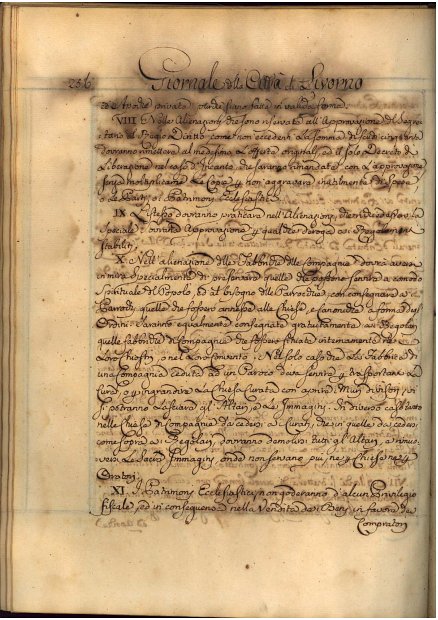 236 Giornale della Città di Livorno
ed Atti privati
VIII Nelle Alienazioni che sono riservate all'Approvazione del Segre
tario del Regio Diritto come non eccedenti la somma di scudi cinquanta
dovranno rimettersi al medesimo le offerte originali, ed il solo Decreto di
Liberazione nel caso d'Incanto, che saranno rimandate con la approvazione
senza moltiplicare le Copie, e non aggravare inutilmente di spese
o le Parti, o i Patrimoni Ecclesiastici
IX Lo stesso dovranno praticare nell'Alienazioni, che richiedano la
speciale Sovrana Approvazione e qualche deroga ai Regolamenti
stabiliti
X. Nell'alienazione delle Fabbriche delle Compagnie dovrà aversi
in mira specialmente di preservare quelle che possono servire a comodo
spirituale del Popolo, ed al bisogno delle Parrocchie, con consegnare a
Parrochi quelle che fossero annesse alle Chiese, e Canoniche a forma degl'
Ordini: Saranno egualmente consegnate gratuitamente ai Regolari
quelle fabbriche di Compagnie che fossero situate internamente nei
Loro Chiostri, o nel loro Convento: Nel solo caso che la Fabbrica di
una Compagnia ceduta ad un Paroco deva servire per trasportare la
Cura, o per ingrandire la Chiesa Curata con aprire i Muri divisori, vi
si potranno lasciare gl'Altari, e le Immagini. In diverso caso tanto
nelle Chiese di Compagnie da cedersi a Curati, che in quelle da cedersi
come sopra ai Regolari, dovranno demolirsi tutti gl'Altari, e rimuo
versi le Sacre Immagini, onde non servano più nè per Chiese nè per
Oratori
XI. I Patrimoni Ecclesiastici non goderanno d'alcun Privilegio
fiscale, ed in conseguenza nella Vendita dei Beni in favore dei
Compratori